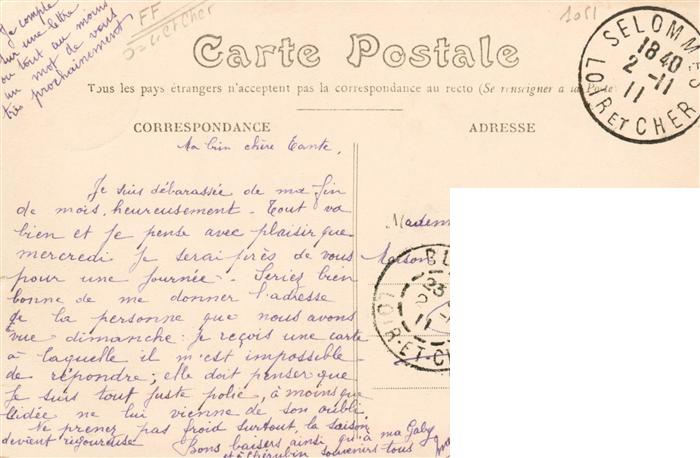 Je compte
sur une lettre
ou tout au moins
un mot de vous
très prochainement
FF
Loir et Cher
1051
Carte Postale
Tous les pays étrangers n'acceptent pas la correspondance au recto (Se renseigner à la Poste)
SELOMM
18 40
2 -11
11
LOIR ET CHER
CORRESPONDANCE
ADRESSE
Ma bien chère Tante,
Je suis débarassée de ma fin
de mois, heureusement - Tout va
bien et Je pense avec plaisir que
mercredi Je serai près de vous
pour une Journée - Seriez bien
bonne de me donner l'adresse
de la personne que nous avons
vue dimanche : je reçois une carte
à laquelle il m'est impossible
de répondre ; elle doit penser que
Je suis tout juste polie, à moins que
l'idée ne lui vienne de son oubli.
Ne prenez pas froid surtout, la saison
devient rigoureuse
Bons baisers ainsi qu'à ma Gaby
et à Chérubin souvenirs tous
Madem
Maison
BL
23
11
LOIR-ET-C